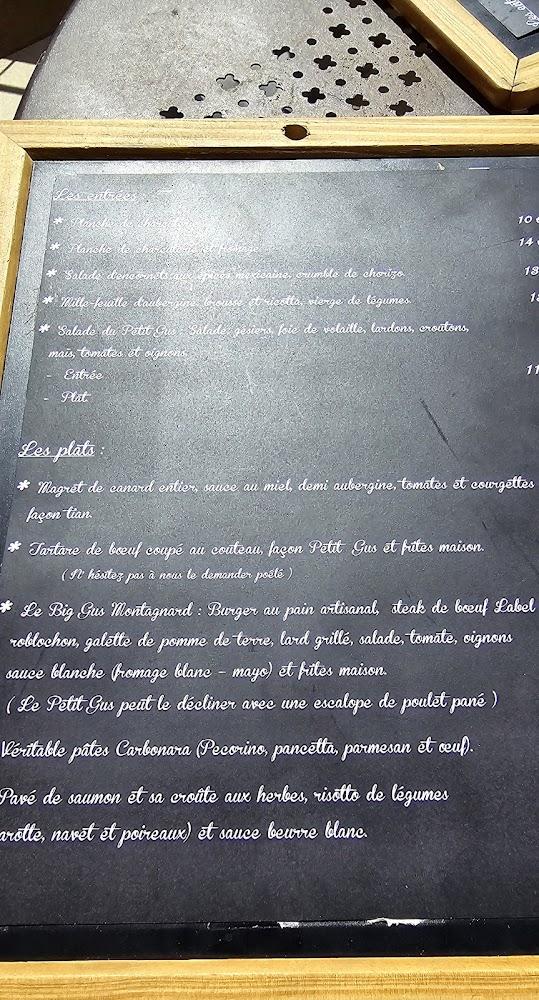 Les entrées
* Planche de 10 €
* Planche de charcuterie et fromage 14 €
* Salade d'encornets aux épices mexicaine, crumble de chorizo. 13
* Mille-feuille d'aubergine, brousse et ricotta, vierge de légumes.
* Salade du Petit Gus : Salade, gésiers, foie de volaille, lardons, croûtons,
maïs, tomates et oignons.
- Entrée 11
- Plat
Les plats :
* Magret de canard entier, sauce au miel, demi aubergine, tomates et courgettes
façon tian.
* Tartare de bœuf coupé au couteau, façon Petit Gus et frites maison.
( N'hésitez pas à nous le demander poêlé )
* Le Big Gus Montagnard : Burger au pain artisanal, steak de bœuf Label
roblochon, galette de pomme de terre, lard grillé, salade, tomate, oignons
sauce blanche (fromage blanc - mayo) et frites maison.
( Le Petit Gus peut le décliner avec une escalope de poulet pané )
Véritable pâtes Carbonara (Pecorino, pancetta, parmesan et œuf).
Pavé de saumon et sa croûte aux herbes, risotto de légumes
arotte, navet et poireaux) et sauce beurre blanc.